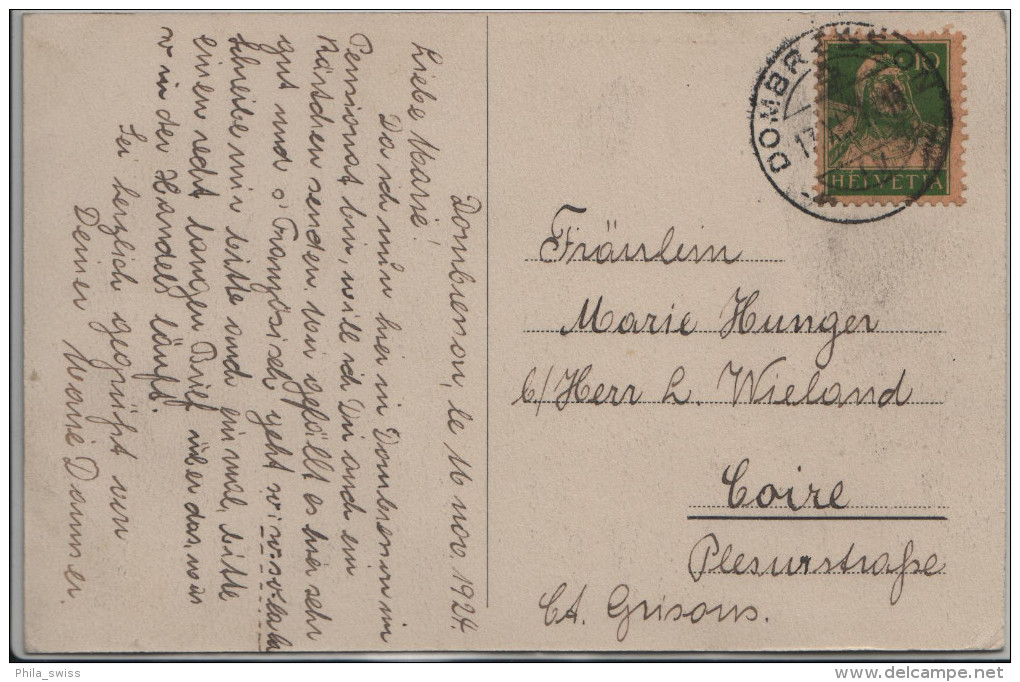 Dombresson, le 16 nov 1924
Liebe Marie!
Da ich nun hier in Dombresson im
Pensionat bin, will ich Dir auch ein
Kärtchen senden, mir gefällt es hier sehr
gut und s' Französisch geht
schreibe mir bitte auch ein mal, bitte
einen recht langen Brief über das, was
in der Handels läuft.
Sei herzlich gegrüßt von
Deiner Marie Danuser.
DOMBRESSON
17
10
HELVETIA
Fräulein
Marie Hunger
b/Herr L. Wieland
Coire
Plesurstraße
Ct. Grisons.
Phila_swiss
delcampe.net